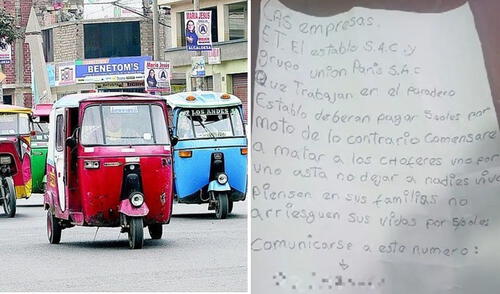 MARIA JESUS
ALCALDESA
BENETOM'S
Maria Jesus
LOS ANDES
LAS empresas.
E.T. El establo S.A.C y
grupo union Paris S.A.C
Que Trabajan en el Paradero
Establo deberan pagar 5 soles por
moto de lo contrario Comensare
a matar a los CHoferes uno por
uno asta no dejar a nadies vivo
Piensen en sus familias no
arriesguen sus vidas por 5 soles
Comunicarse a este numero: